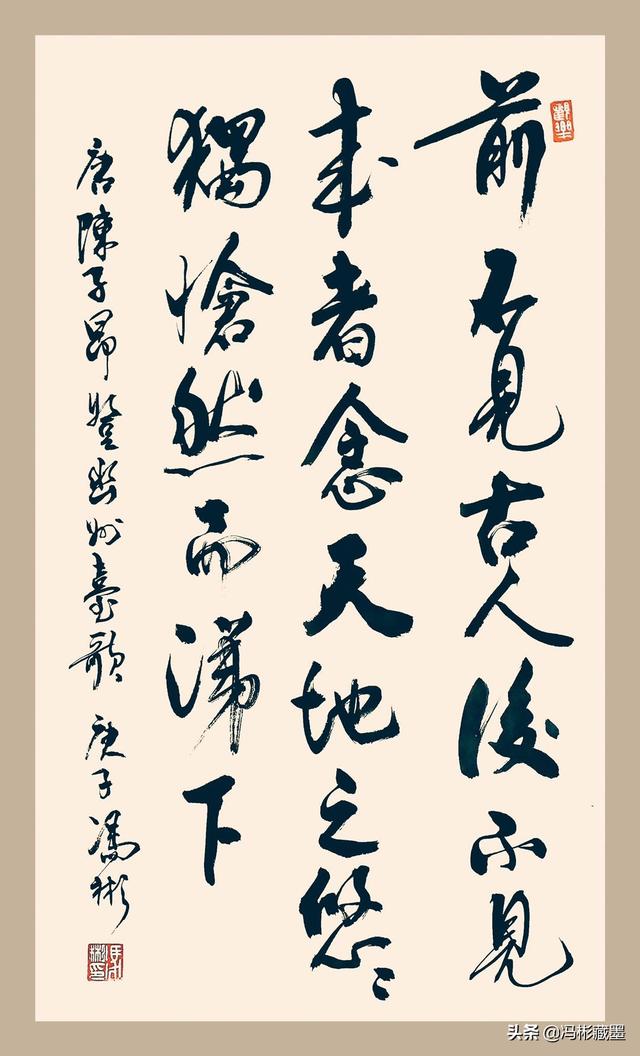 前不見古人後不見
来者念天地之悠々
獨愴然而涕下
唐陳子昂登幽州臺歌 庚子馮彬
头条 @冯彬藏墨